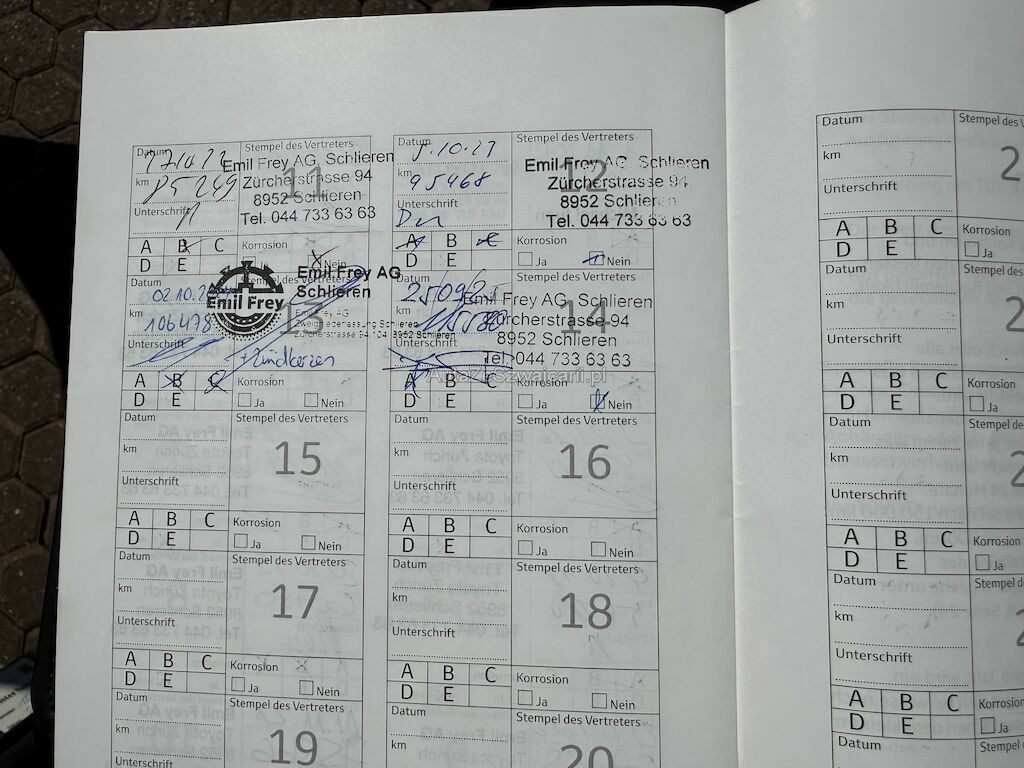 Datum
Stempel des Vertreters
11
km 85249
Unterschrift
Emil Frey AG, Schlieren
Zürcherstrasse 94
8952 Schlieren
Tel. 044 733 63 63
A B C
D E
Korrosion
Ja Nein
Datum
Stempel des Vertreters
12
km 95468
Unterschrift
Emil Frey AG, Schlieren
Zürcherstrasse 94
8952 Schlieren
Tel. 044 733 63 63
A B C
D E
Korrosion
Ja Nein
Datum 02.10.
Stempel des Vertreters
13
km 106478
Unterschrift
Emil Frey
Emil Frey AG
Schlieren
Emil Frey AG
Zweigniederlassung Schlieren
+Zündkerzen
A B C
D E
Korrosion
Ja Nein
14
Unterschrift
Emil Frey AG, Schlieren
Zürcherstrasse 94
8952 Schlieren
Tel. 044 733 63 63
A B C
D E
Korrosion
Ja Nein
Datum
Stempel des Vertreters
15
km
Unterschrift
A B C
D E
Korrosion
Ja Nein
Datum
Stempel des Vertreters
16
km
Unterschrift
A B C
D E
Korrosion
Ja Nein
Datum
Stempel des Vertreters
17
km
Unterschrift
A B C
D E
Korrosion
Ja Nein
Datum
Stempel des Vertreters
18
km
Unterschrift
A B C
D E
Korrosion
Ja Nein
Datum
Stempel des Vertreters
19
km
Unterschrift
Datum
Stempel des Vertreters
20
km
Datum
Stempel des
2
km
Unterschrift
A B C
D E
Korrosion
Ja
Datum
Stempel des
2
km
Unterschrift
A B C
D E
Korrosion
Ja
Datum
Stempel des
2
km
Unterschrift
A B C
D E
Korrosion
Ja
Datum
Stempel d
2
km
Unterschrift
A B C
D E
Korrosion
Ja
Datum
Stempel